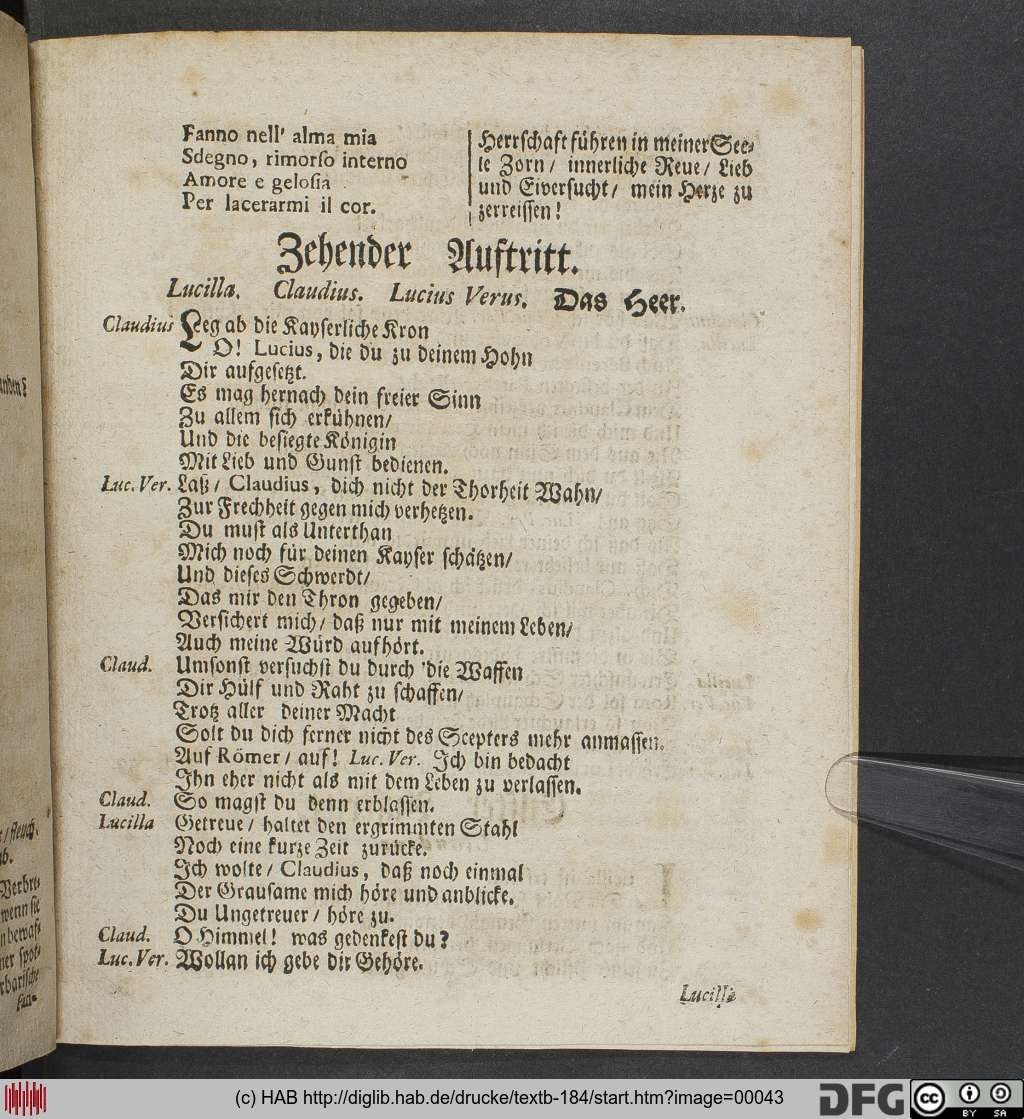 Fanno nell' alma mia
Sdegno, rimorſo interno
Amore e geloſia
Per lacerarmi il cor.
Herrſchaft führen in meiner See-
le Zorn/ innerliche Reue/ Lieb
und Eiverſucht/ mein Herze zu
zerreiſſen!
Zehender Auftritt.
Lucilla. Claudius. Lucius Verus. Das Heer.
Claudius Leg ab die Kayſerliche Kron
O! Lucius, die du zu deinem Hohn
Dir aufgeſetzt.
Es mag hernach dein freier Sinn
Zu allem ſich erkühnen/
Und die beſiegte Königin
Mit Lieb und Gunſt bedienen.
Luc. Ver. Laß/ Claudius, dich nicht der Thorheit Wahn/
Zur Frechheit gegen mich verhetzen.
Du muſt als Unterthan
Mich noch für deinen Kayſer ſchätzen/
Und dieſes Schwerdt/
Das mir den Thron gegeben/
Verſichert mich/ daß nur mit meinem Leben/
Auch meine Würd aufhört.
Claud. Umſonſt verſuchſt du durch die Waffen
Dir Hülf und Raht zu ſchaffen/
Trotz aller deiner Macht
Solt du dich ferner nicht des Scepters mehr anmaſſen.
Auf Römer/ auf! Luc. Ver. Ich bin bedacht
Ihn eher nicht als mit dem Leben zu verlaſſen.
Claud. So magſt du denn erblaſſen.
Lucilla Getreue/ haltet den ergrimmten Stahl
Noch eine kurze Zeit zurücke.
Ich wolte/ Claudius, daß noch einmal
Der Grauſame mich höre und anblicke.
Du Ungetreuer/ höre zu.
Claud. O Himmel! was gedenkeſt du?
Luc. Ver. Wollan ich gebe dir Gehöre.
Lucilla
(c) HAB http://diglib.hab.de/drucke/textb-184/start.htm?image=00043
DFG
cc
BY SA